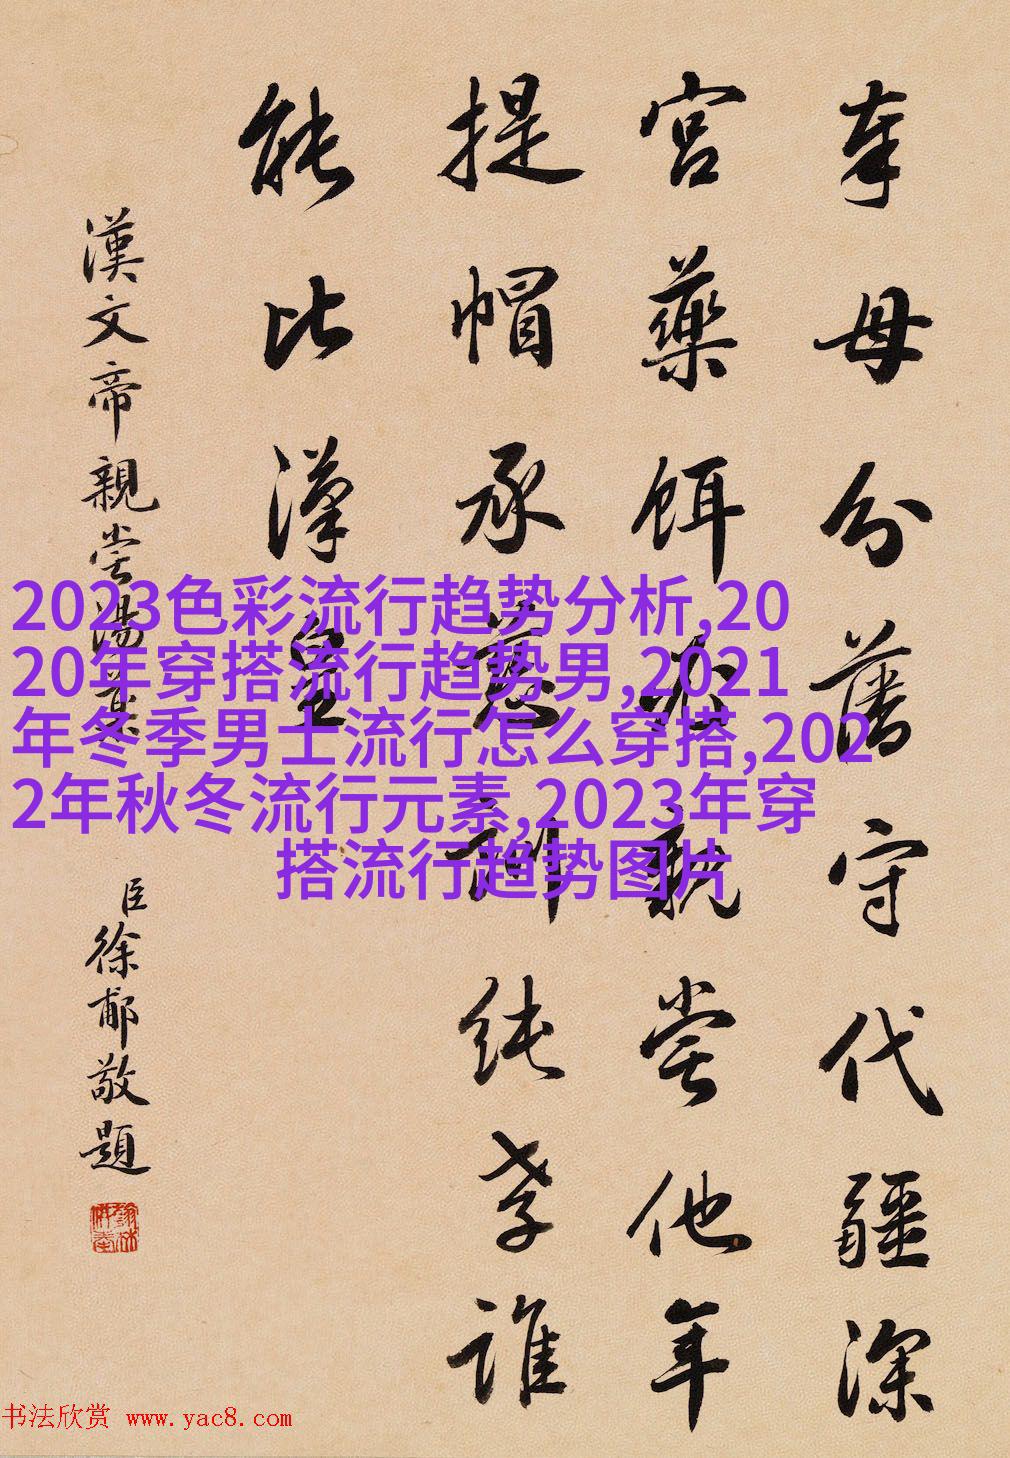 奉母分藩守代疆深
宮藥餌親嘗他年
提帽承慈訓純孝誰
能比漢皇
漢文帝親嘗湯藥
臣徐郙敬題
2023色彩流行趋势分析,20
20年穿搭流行趋势男,2021
年冬季男士流行怎么穿搭,202
2年秋冬流行元素,2023年穿
搭流行趋势图片
书法欣赏 www.yac8.com